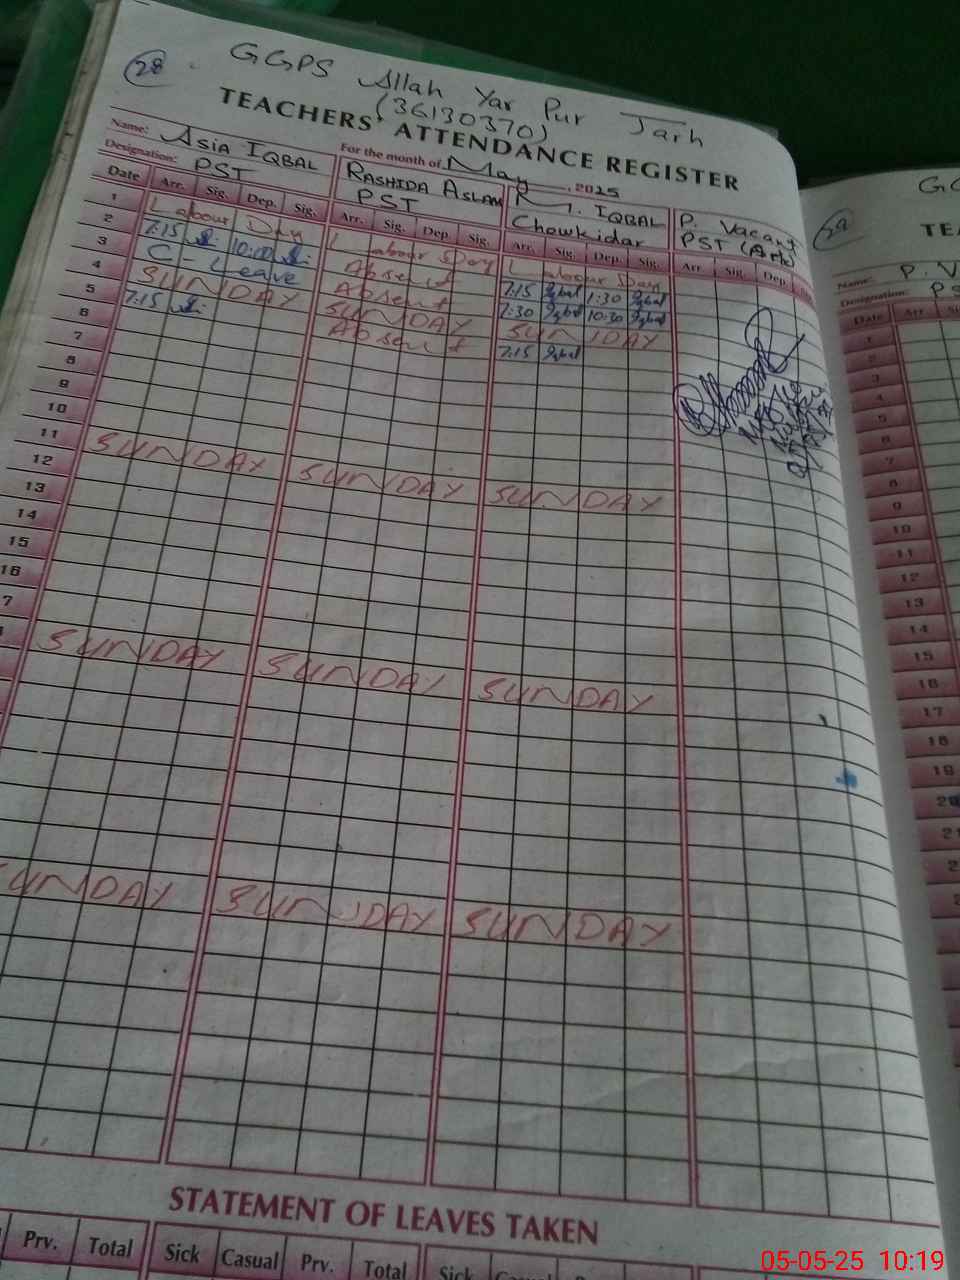 28
GGPS Allah Yar Pur Jarh
(36130370)
TEACHERS' ATTENDANCE REGISTER
For the month of May, 2025
Name: Asia IQBAL RASHIDA ASLAM M. IQBAL P. Vacant
Designation: PST PST Chowkidar PST (Arts)
Date Arr. Sig. Dep. Sig. Arr. Sig. Dep. Sig. Arr. Sig. Dep. Sig. Arr. Sig. Dep.
1 Labour Day Labour Day Labour Day
2 7:15 10:00 Absent 7:15 Iqbal 1:30 Iqbal
3 C-Leave Absent 7:30 Iqbal 10:30 Iqbal
4 SUNDAY SUNDAY SUNDAY
5 7:15 Absent 7:15 Iqbal
6
7
8
9
10
11 SUNDAY SUNDAY SUNDAY
12
13
14
15
16
7
SUNDAY SUNDAY SUNDAY
UNDAY SUNDAY SUNDAY
STATEMENT OF LEAVES TAKEN
Prv. Total Sick Casual Prv. Total Sick Casual
29
GG
TE
Name: P. V
Designation: PS
Date Arr
1
2
3
4
5
6
7
8
9
10
11
12
13
14
15
16
17
18
19
20
21
2
05-05-25 10:19